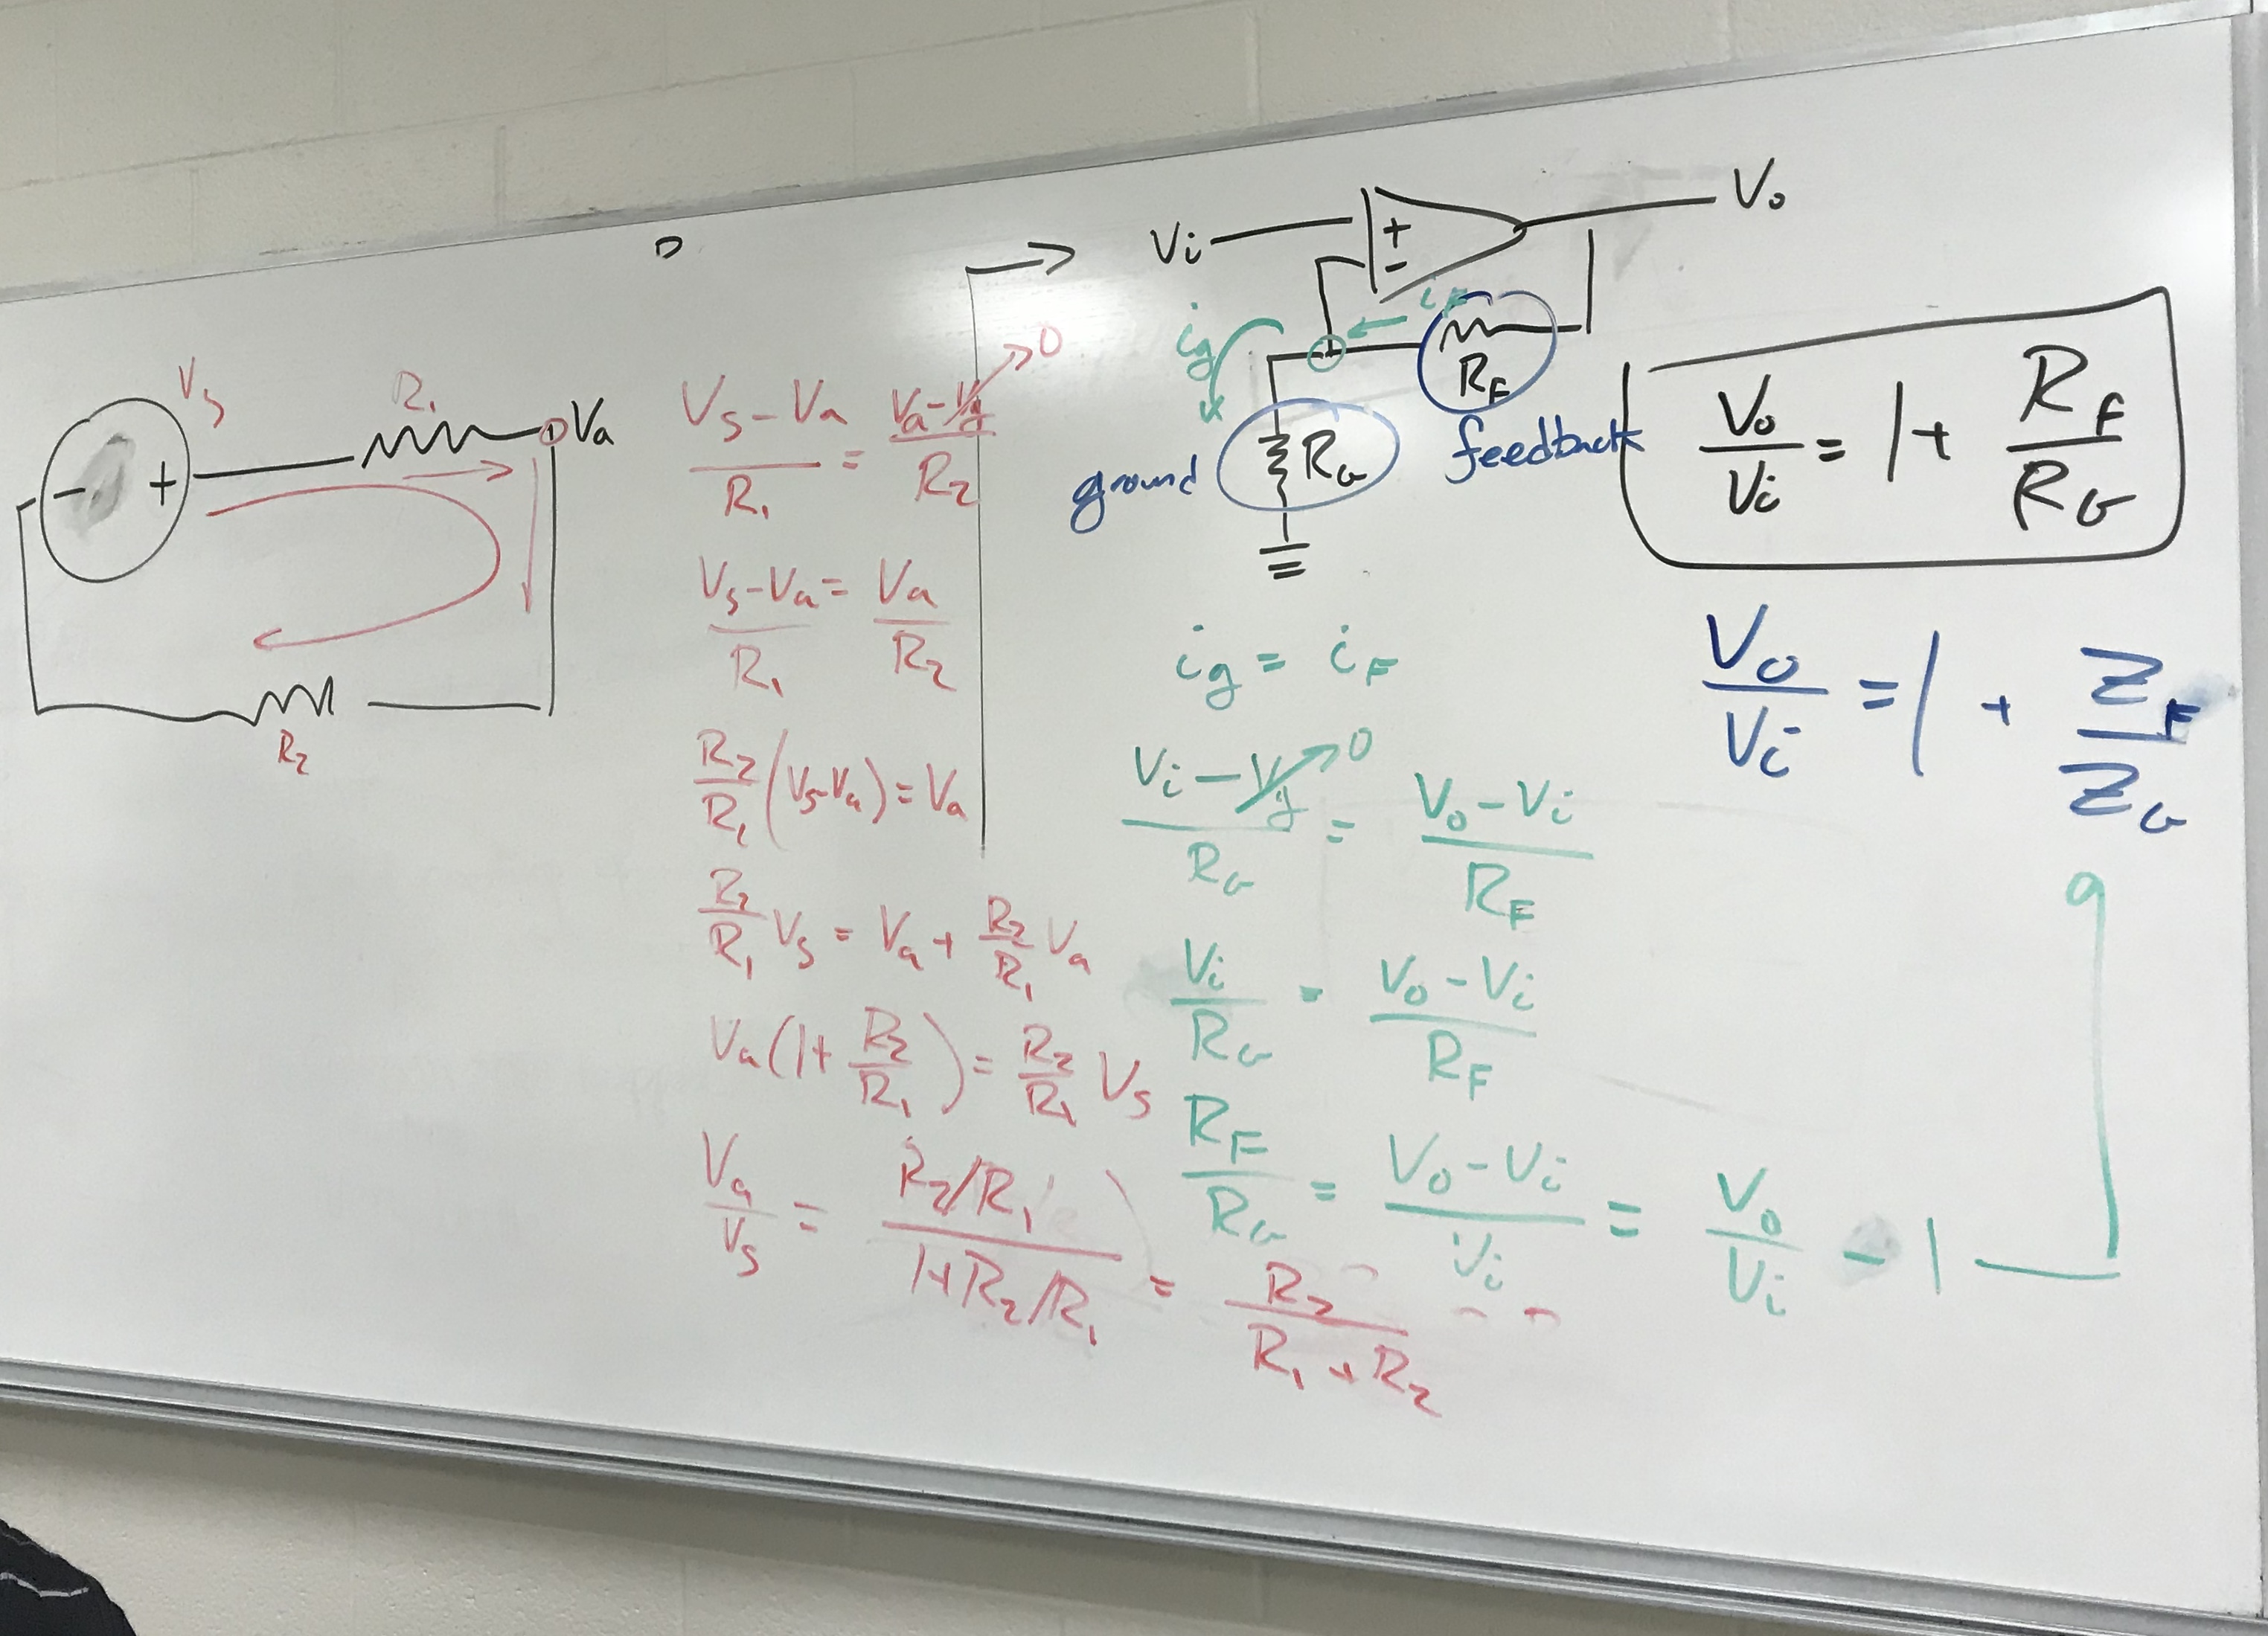 V_s
R_1
V_a
- +
R_2
(V_s - V_a)/R_1 = (V_a - V_g)/R_2 → 0
(V_s - V_a)/R_1 = V_a/R_2
R_2/R_1 (V_s - V_a) = V_a
R_2/R_1 V_s = V_a + R_2/R_1 V_a
V_a (1 + R_2/R_1) = R_2/R_1 V_s
V_a/V_s = (R_2/R_1)/(1 + R_2/R_1) = R_2/(R_1 + R_2)
V_i
+
-
V_o
i_g
i_F
R_F
feedback
ground
R_G
i_g = i_F
(V_i - V_g)/R_G = (V_o - V_i)/R_F → 0
V_i/R_G = (V_o - V_i)/R_F
R_F/R_G = (V_o - V_i)/V_i = V_o/V_i - 1
V_o/V_i = 1 + R_F/R_G
V_o/V_i = 1 + Z_F/Z_G